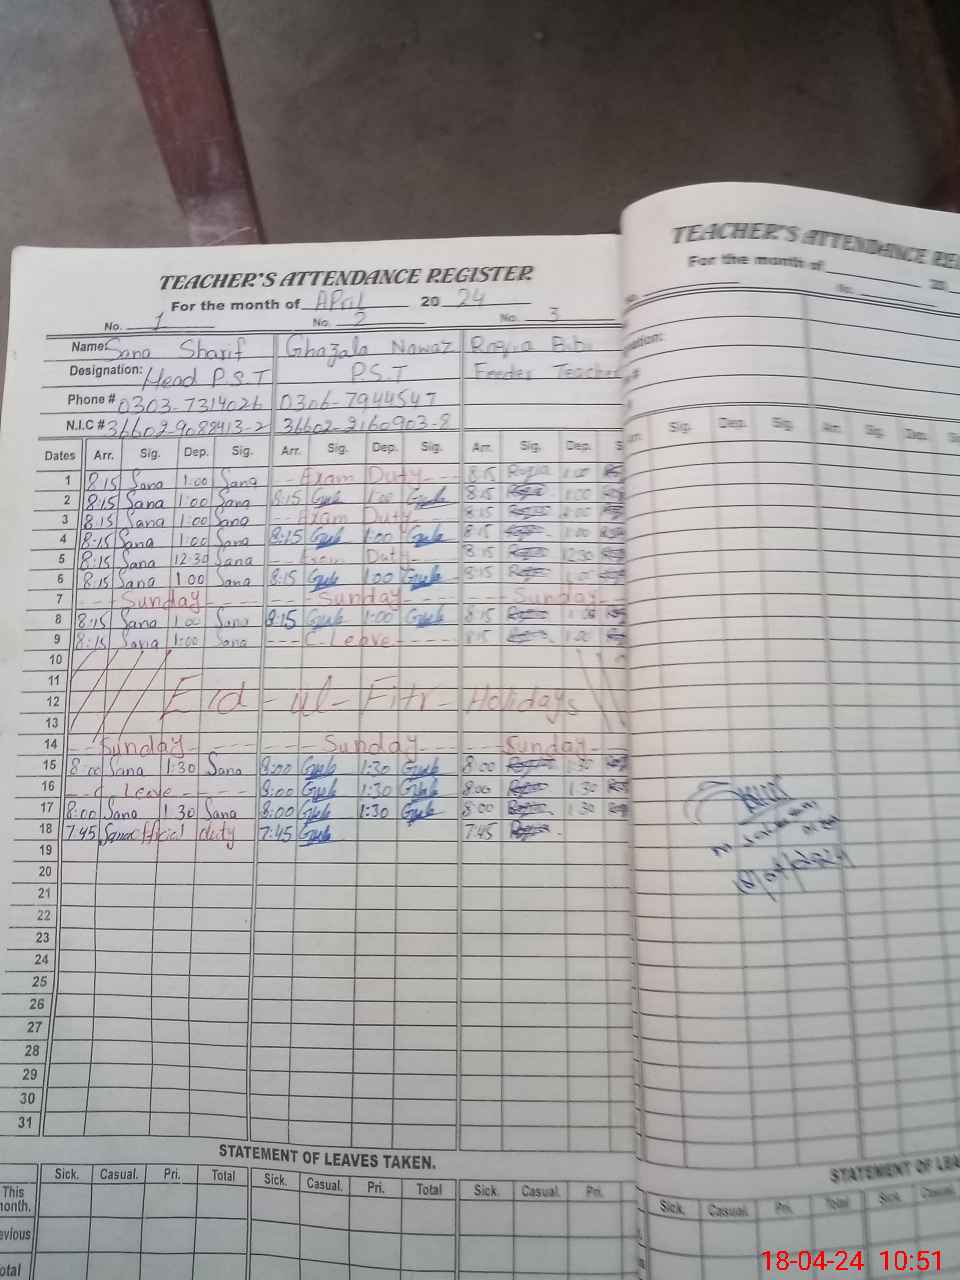 TEACHER'S ATTENDANCE REGISTER
For the month of APril 2024
No. 1 No. 2 No. 3
Name: Sana Sharif Ghazala Nawaz Roqia Bibi
Designation: Head P.S.T P.S.T Feeder Teacher
Phone # 0303-7314026 0306-7944547
N.I.C # 36602-9088413-2 36602-2160903-8
Dates Arr. Sig. Dep. Sig. Arr. Sig. Dep. Sig. Arr. Sig. Dep. S
1 8:15 Sana 1:00 Sana --Exam Duty--- 8:15 Roqia 1:00
2 8:15 Sana 1:00 Sana 8:15 1:00 8:15 1:00
3 8:15 Sana 1:00 Sana --Exam Duty 8:15 1:00
4 8-15 Sana 1:00 Sana 8:15 1:00 8:15 1:00
5 8:15 Sana 12:30 Sana -- Exam Duty -- 8:15 12:30
6 8:15 Sana 1 00 Sana 8:15 1:00 8:15 1:00
7 ---Sunday----- ---Sunday---- ---Sunday--
8 8:15 Sana 1:00 Sana 8:15 1:00 8:15 1:00
9 8:15 Sana 1:00 Sana --- C.Leave---- 8:15 1:00
10
11
12 Eid-ul-Fitr-Holidays
13
14 --Sunday---- ----Sunday---- ---Sunday-
15 8:00 Sana 1:30 Sana 8:00 1:30 8:00 1:30
16 --C. Leave---- 8:00 1:30 8:00 1 30
17 8:00 Sana 1 30 Sana 8:00 1:30 8:00 1 30
18 7:45 Sana official duty 7:45 7:45
19
20
21
22
23
24
25
26
27
28
29
30
31
STATEMENT OF LEAVES TAKEN.
Sick. Casual. Pri. Total Sick. Casual. Pri. Total Sick. Casual. Pri.
This
month.
evious
otal
TEACHER'S ATTENDANCE RE
For the month of 20
No.
Sig. Dep. Sig. Arr. Sig. Dep.
18/04/2024
STATEMENT OF LEA
Sick. Casual. Pri. Total Sick. Casual.
18-04-24 10:51